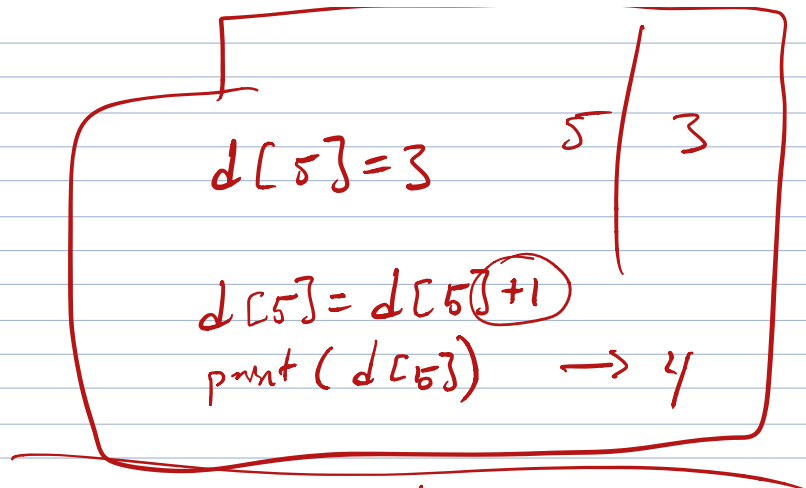 d[5]=3
5 | 3
d[5]=d[5]+1
print(d[5]) → 4